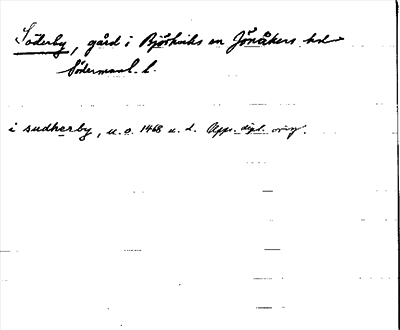 Söderby, gård i Björkviks sn Jönåkers hd
Södermanl. l.
i sudherby, u.o. 1468 u. d. Upps. dipl. orig.